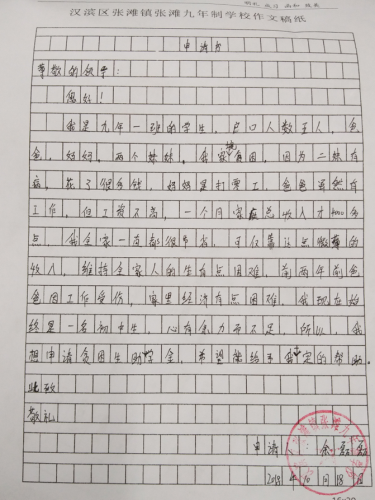 汉滨区张滩镇张滩九年制学校作文稿纸
申请书
尊敬的领导:
您好!
我是九年一班的学生,户口人数五人,爸
爸,妈妈,两个妹妹。我家境贫困,因为二妹有
病,花了很多钱,妈妈是打零工,爸爸虽然有
工作,但工资不高,一个月家庭总收入才4000多
点,我全家一直都很节省,可仅靠这点微薄的
收入,维持全家人的生存有点困难,前两年前爸
爸因工作受伤,家里经济有点困难,我现在始
终是一名初中生,心有余力而不足,所以,我
想申请贫困生助学金,希望能给予我一定的帮助。
此致
敬礼
申请人:余
2018年10月18日